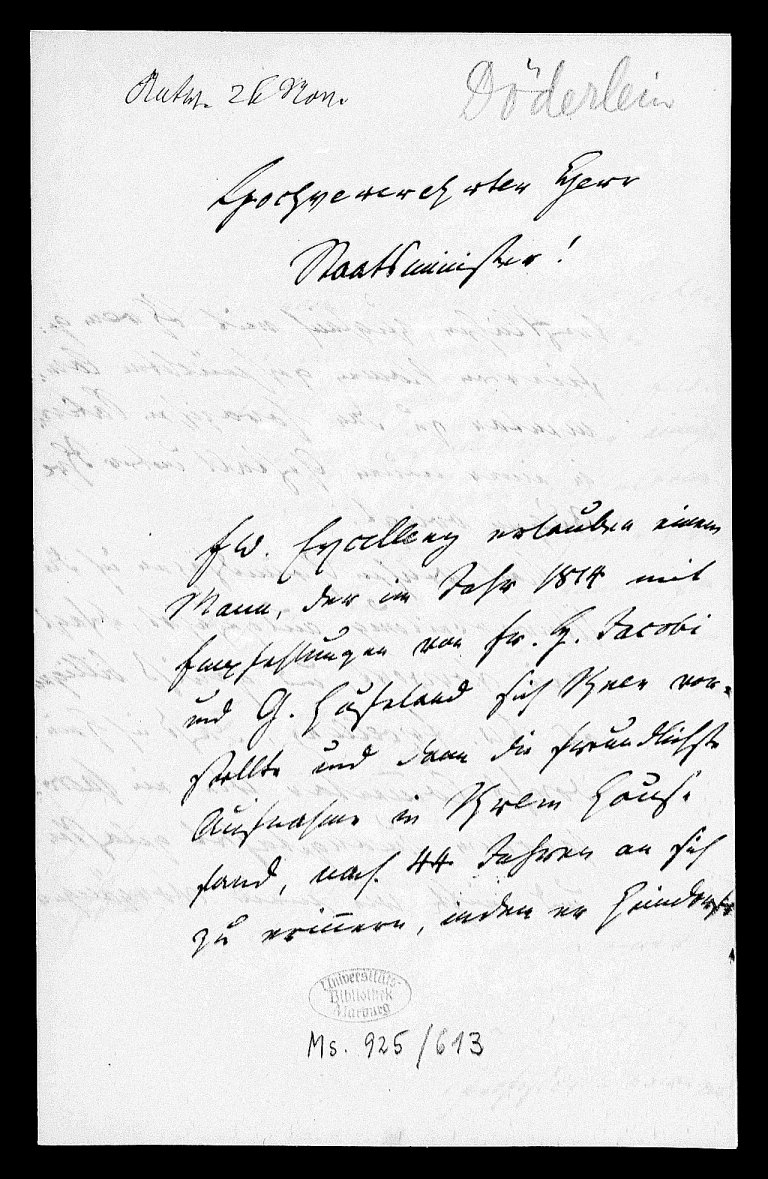 Antw. 26 Nov.
Döderlein
Hochverehrter Herr
Staatsminister!
Ew. Excellenz erlauben einem
Mann, der im Jahr 1814 mit
Empfehlungen von Fr. H. Jacobi
und G. Hufeland sich Ihnen vor-
stellte und dann die freundlichste
Aufnahme in Ihrem Hause
fand, nach 44 Jahren an sich
zu erinnern, indem er
Universitäts-
Bibliothek
Marburg
Ms. 925/613